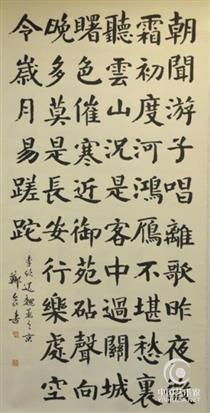 朝聞游子唱離歌昨夜微
霜初度河鴻雁不堪愁裏
聽雲山況是客中過關城
曙色催寒近御苑砧聲向
晚多莫是長安行樂處空
令歲月易蹉跎
李頎送魏萬之京